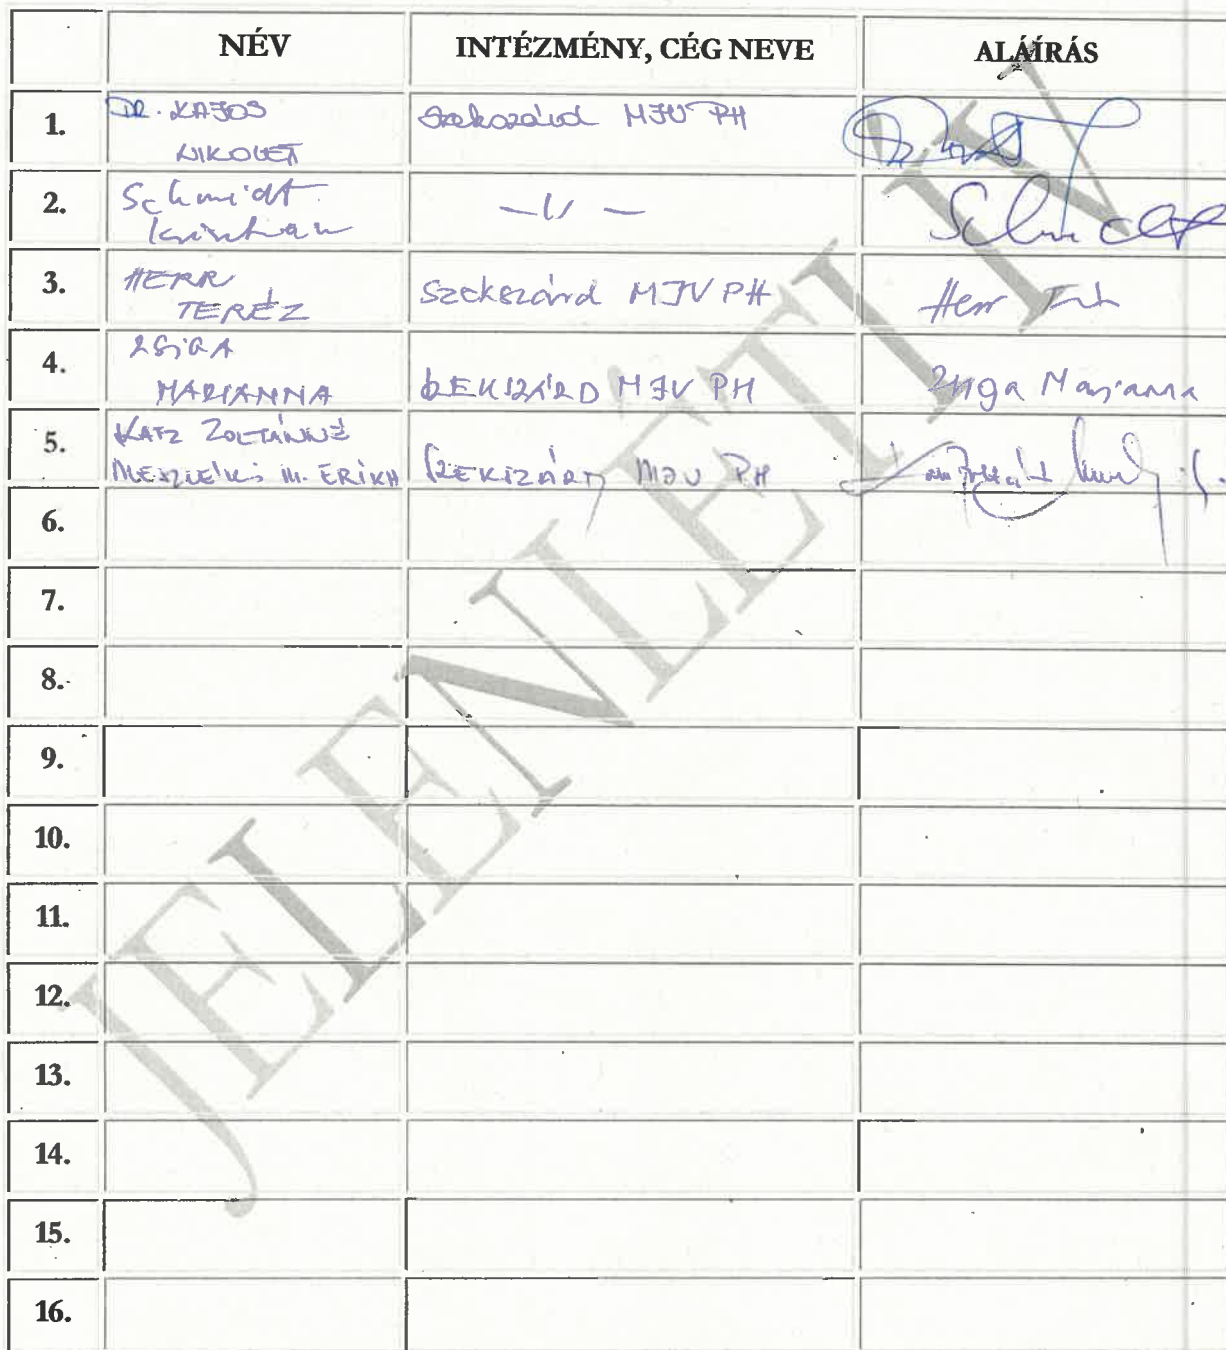 NÉV INTÉZMÉNY, CÉG NEVE ALÁÍRÁS
1. DR. KAJOS Szekszárd MJV PH
NIKOLET
2. Schmidt -〃- Schmidt
Krisztián
3. HERR Szekszárd MJV PH Herr
TERÉZ
4. ZSIGA
MARIANNA SZEKSZÁRD MJV PH Zsiga Marianna
5. KATZ ZOLTÁNNÉ
M. ERIKA SZEKSZÁRD MJV PH
6.
7.
8.
9.
10.
11.
12.
13.
14.
15.
16.
JELENLÉTI ÍV